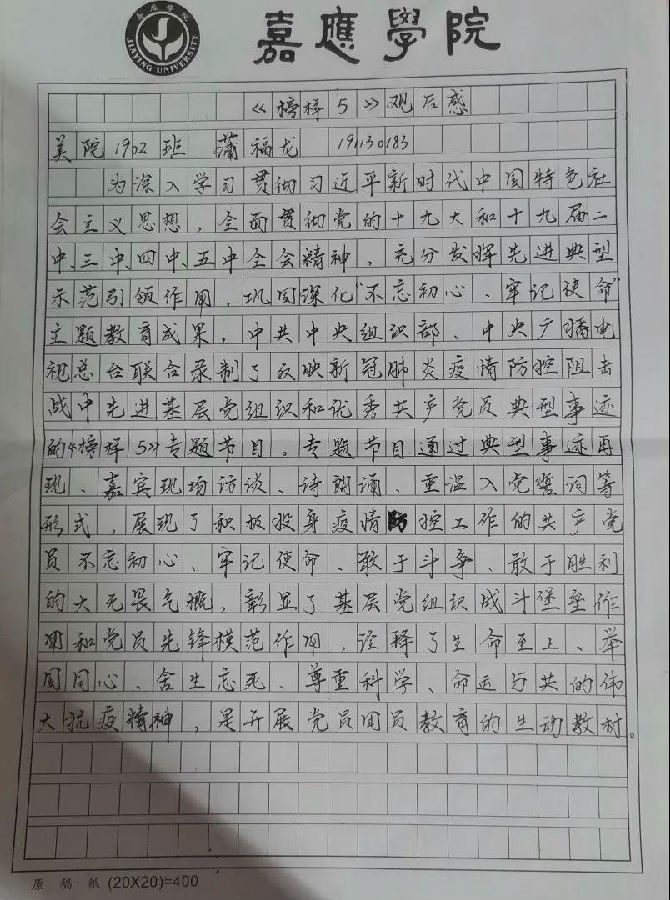 嘉應學院
嘉應學院
JIAYING UNIVERSITY
《榜样5》观后感
美院1902班 蒲福龙 191130183
为深入学习贯彻习近平新时代中国特色社
会主义思想，全面贯彻党的十九大和十九届二
中、三中、四中、五中全会精神，充分发挥先进典型
示范引领作用，巩固深化“不忘初心、牢记使命”
主题教育成果，中共中央组织部、中央广播电
视总台联合录制了反映新冠肺炎疫情防控阻击
战中先进基层党组织和优秀共产党员典型事迹
的《榜样5》专题节目。专题节目通过典型事迹再
现、嘉宾现场访谈、诗朗诵、重温入党誓词等
形式，展现了积极投身疫情防控工作的共产党
员不忘初心、牢记使命、敢于斗争、敢于胜利
的大无畏气概，彰显了基层党组织战斗堡垒作
用和党员先锋模范作用，诠释了生命至上、举
国同心、舍生忘死、尊重科学、命运与共的伟
大抗疫精神，是开展党员团员教育的生动教材。
原稿纸 (20X20)=400